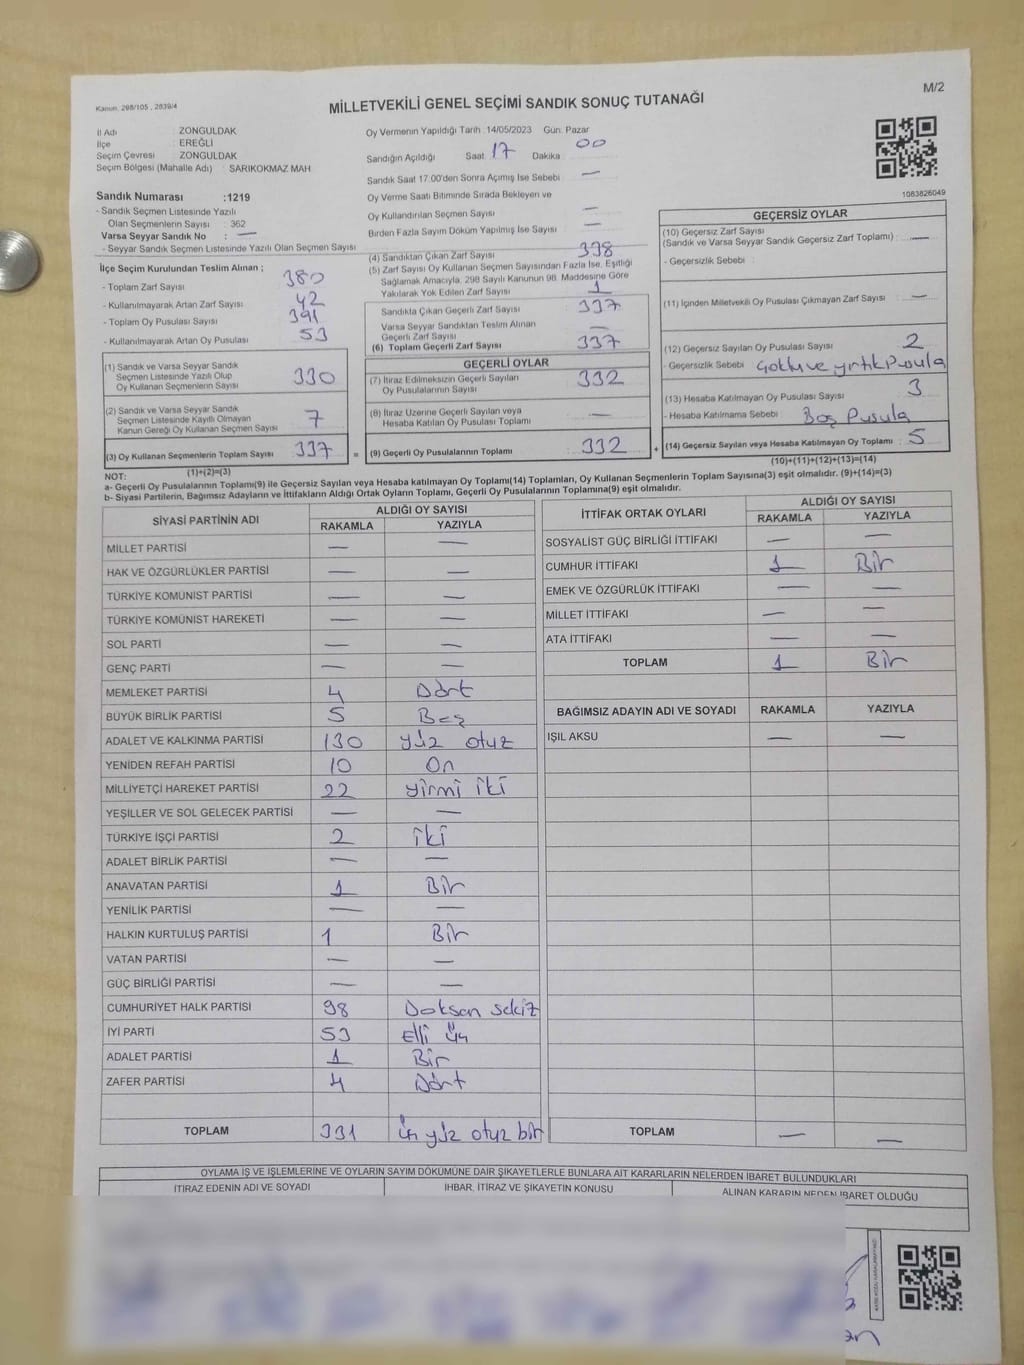 Kanun. 298/105 , 2839/4
MİLLETVEKİLİ GENEL SEÇİMİ SANDIK SONUÇ TUTANAĞI
M/2
İl Adı : ZONGULDAK
İlçe : EREĞLİ
Seçim Çevresi : ZONGULDAK
Seçim Bölgesi (Mahalle Adı) : SARIKOKMAZ MAH
Oy Vermenin Yapıldığı Tarih :14/05/2023 Gün: Pazar
Sandığın Açıldığı Saat: 17 Dakika : 00
Sandık Saat 17:00'den Sonra Açımış İse Sebebi : —
Oy Verme Saati Bitiminde Sırada Bekleyen ve
Oy Kullandırılan Seçmen Sayısı : —
Birden Fazla Sayım Döküm Yapılmış İse Sayısı : —
1083826049
Sandık Numarası :1219
- Sandık Seçmen Listesinde Yazılı
Olan Seçmenlerin Sayısı : 362
Varsa Seyyar Sandık No : —
- Seyyar Sandık Seçmen Listesinde Yazılı Olan Seçmen Sayısı
İlçe Seçim Kurulundan Teslim Alınan ;
- Toplam Zarf Sayısı 380
- Kullanılmayarak Artan Zarf Sayısı 42
- Toplam Oy Pusulası Sayısı 391
- Kullanılmayarak Artan Oy Pusulası 53
(1) Sandık ve Varsa Seyyar Sandık
Seçmen Listesinde Yazılı Olup
Oy Kullanan Seçmenlerin Sayısı 330
(2) Sandık ve Varsa Seyyar Sandık
Seçmen Listesinde Kayıtlı Olmayan
Kanun Gereği Oy Kullanan Seçmen Sayısı 7
(3) Oy Kullanan Seçmenlerin Toplam Sayısı 337
(1)+(2)=(3)
(4) Sandıktan Çıkan Zarf Sayısı 338
(5) Zarf Sayısı Oy Kullanan Seçmen Sayısından Fazla İse, Eşitliği
Sağlamak Amacıyla, 298 Sayılı Kanunun 98. Maddesine Göre
Yakılarak Yok Edilen Zarf Sayısı 1
Sandıkta Çıkan Geçerli Zarf Sayısı 337
Varsa Seyyar Sandıktan Teslim Alınan
Geçerli Zarf Sayısı —
(6) Toplam Geçerli Zarf Sayısı 337
GEÇERLİ OYLAR
(7) İtiraz Edilmeksizin Geçerli Sayılan
Oy Pusulalarının Sayısı 332
(8) İtiraz Üzerine Geçerli Sayılan veya
Hesaba Katılan Oy Pusulası Toplamı —
= (9) Geçerli Oy Pusulalarının Toplamı 332 +
GEÇERSİZ OYLAR
(10) Geçersiz Zarf Sayısı
(Sandık ve Varsa Seyyar Sandık Geçersiz Zarf Toplamı) : —
- Geçersizlik Sebebi :
(11) İçinden Milletvekili Oy Pusulası Çıkmayan Zarf Sayısı : —
(12) Geçersiz Sayılan Oy Pusulası Sayısı : 2
- Geçersizlik Sebebi : Çoklu ve yırtık Pusula
(13) Hesaba Katılmayan Oy Pusulası Sayısı : 3
- Hesaba Katılmama Sebebi : Boş Pusula
(14) Geçersiz Sayılan veya Hesaba Katılmayan Oy Toplamı : 5
(10)+(11)+(12)+(13)=(14)
NOT:
a- Geçerli Oy Pusulalarının Toplamı(9) ile Geçersiz Sayılan veya Hesaba katılmayan Oy Toplamı(14) Toplamları, Oy Kullanan Seçmenlerin Toplam Sayısına(3) eşit olmalıdır. (9)+(14)=(3)
b- Siyasi Partilerin, Bağımsız Adayların ve İttifakların Aldığı Ortak Oyların Toplamı, Geçerli Oy Pusulalarının Toplamına(9) eşit olmalıdır.
SİYASİ PARTİNİN ADI ALDIĞI OY SAYISI
RAKAMLA YAZIYLA
MİLLET PARTİSİ — —
HAK VE ÖZGÜRLÜKLER PARTİSİ — —
TÜRKİYE KOMÜNİST PARTİSİ — —
TÜRKİYE KOMÜNİST HAREKETİ — —
SOL PARTİ — —
GENÇ PARTİ — —
MEMLEKET PARTİSİ 4 Dört
BÜYÜK BİRLİK PARTİSİ 5 Beş
ADALET VE KALKINMA PARTİSİ 130 yüz otuz
YENİDEN REFAH PARTİSİ 10 On
MİLLİYETÇİ HAREKET PARTİSİ 22 yirmi iki
YEŞİLLER VE SOL GELECEK PARTİSİ — —
TÜRKİYE İŞÇİ PARTİSİ 2 iki
ADALET BİRLİK PARTİSİ — —
ANAVATAN PARTİSİ 1 Bir
YENİLİK PARTİSİ — —
HALKIN KURTULUŞ PARTİSİ 1 Bir
VATAN PARTİSİ — —
GÜÇ BİRLİĞİ PARTİSİ — —
CUMHURİYET HALK PARTİSİ 98 Doksan sekiz
İYİ PARTİ 53 Elli üç
ADALET PARTİSİ 1 Bir
ZAFER PARTİSİ 4 Dört
TOPLAM 331 üç yüz otuz bir
İTTİFAK ORTAK OYLARI ALDIĞI OY SAYISI
RAKAMLA YAZIYLA
SOSYALİST GÜÇ BİRLİĞİ İTTİFAKI — —
CUMHUR İTTİFAKI 1 Bir
EMEK VE ÖZGÜRLÜK İTTİFAKI — —
MİLLET İTTİFAKI — —
ATA İTTİFAKI — —
TOPLAM 1 Bir
BAĞIMSIZ ADAYIN ADI VE SOYADI RAKAMLA YAZIYLA
IŞIL AKSU — —
TOPLAM — —
OYLAMA İŞ VE İŞLEMLERİNE VE OYLARIN SAYIM DÖKÜMÜNE DAİR ŞİKAYETLERLE BUNLARA AİT KARARLARIN NELERDEN İBARET BULUNDUKLARI
İTİRAZ EDENİN ADI VE SOYADI İHBAR, İTİRAZ VE ŞİKAYETİN KONUSU ALINAN KARARIN NEDEN İBARET OLDUĞU